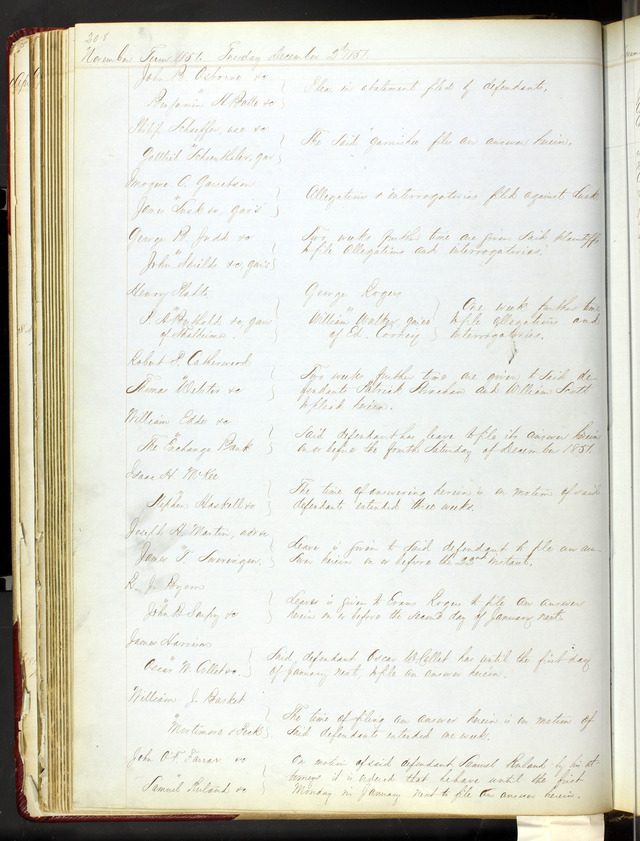 208
November Term 1851. Tuesday December 2d 1851.
John B. Osborne &c
Plea in abatement filed by defendants.
Benjamin H. Batte &c
Philip Schaeffer, use &c
The said garnishee files an answer herein.
Gottlieb gar
C. Garretson
Allegations & interrogatories filed against Lusk
James Lusk &c, gar's
George R. Judd &c
Two weeks further time are given said plaintiffs
to file allegations and interrogatories.
John Shields &c, gar's
Henry George Rogers
gar's William Walker, gar'ee One week further time
of of Ed. to file allegations and
interrogatories.
Robert S. Catherwood
Two weeks further time are given to said de-
Thomas Webster &c
fendants Patrick Strachan and William Scott
to plead herein.
William Eddy &c
Said defendant has leave to file its answer herein
The Exchange Bank
on or before the fourth Saturday of December 1851.
Isaac H. McKee
The time of answering herein is on motion of said
Stephen Haskell &c
defendants extended three weeks.
Joseph A. Martin,
Leave is given to said defendant to file an an-
James T. Sweringen,
swer herein on or before the 22nd instant.
R. J.
Leave is given to Evans Rogers to file an answer
John H. &c
herein on or before the second day of January next.
James Harrison
Said defendant Oscar W. Collet has until the first day
Oscar W. Collet &c.
of January next, to file an answer herein.
William J. Basket
The time of filing an answer herein is on motion of
Mortimore &
said defendants extended one week.
John O'F. Farrar &c
On motion of said defendant Samuel by his at-
torneys it is ordered that he have until the first
Samuel &c
Monday in January next to file an answer herein.